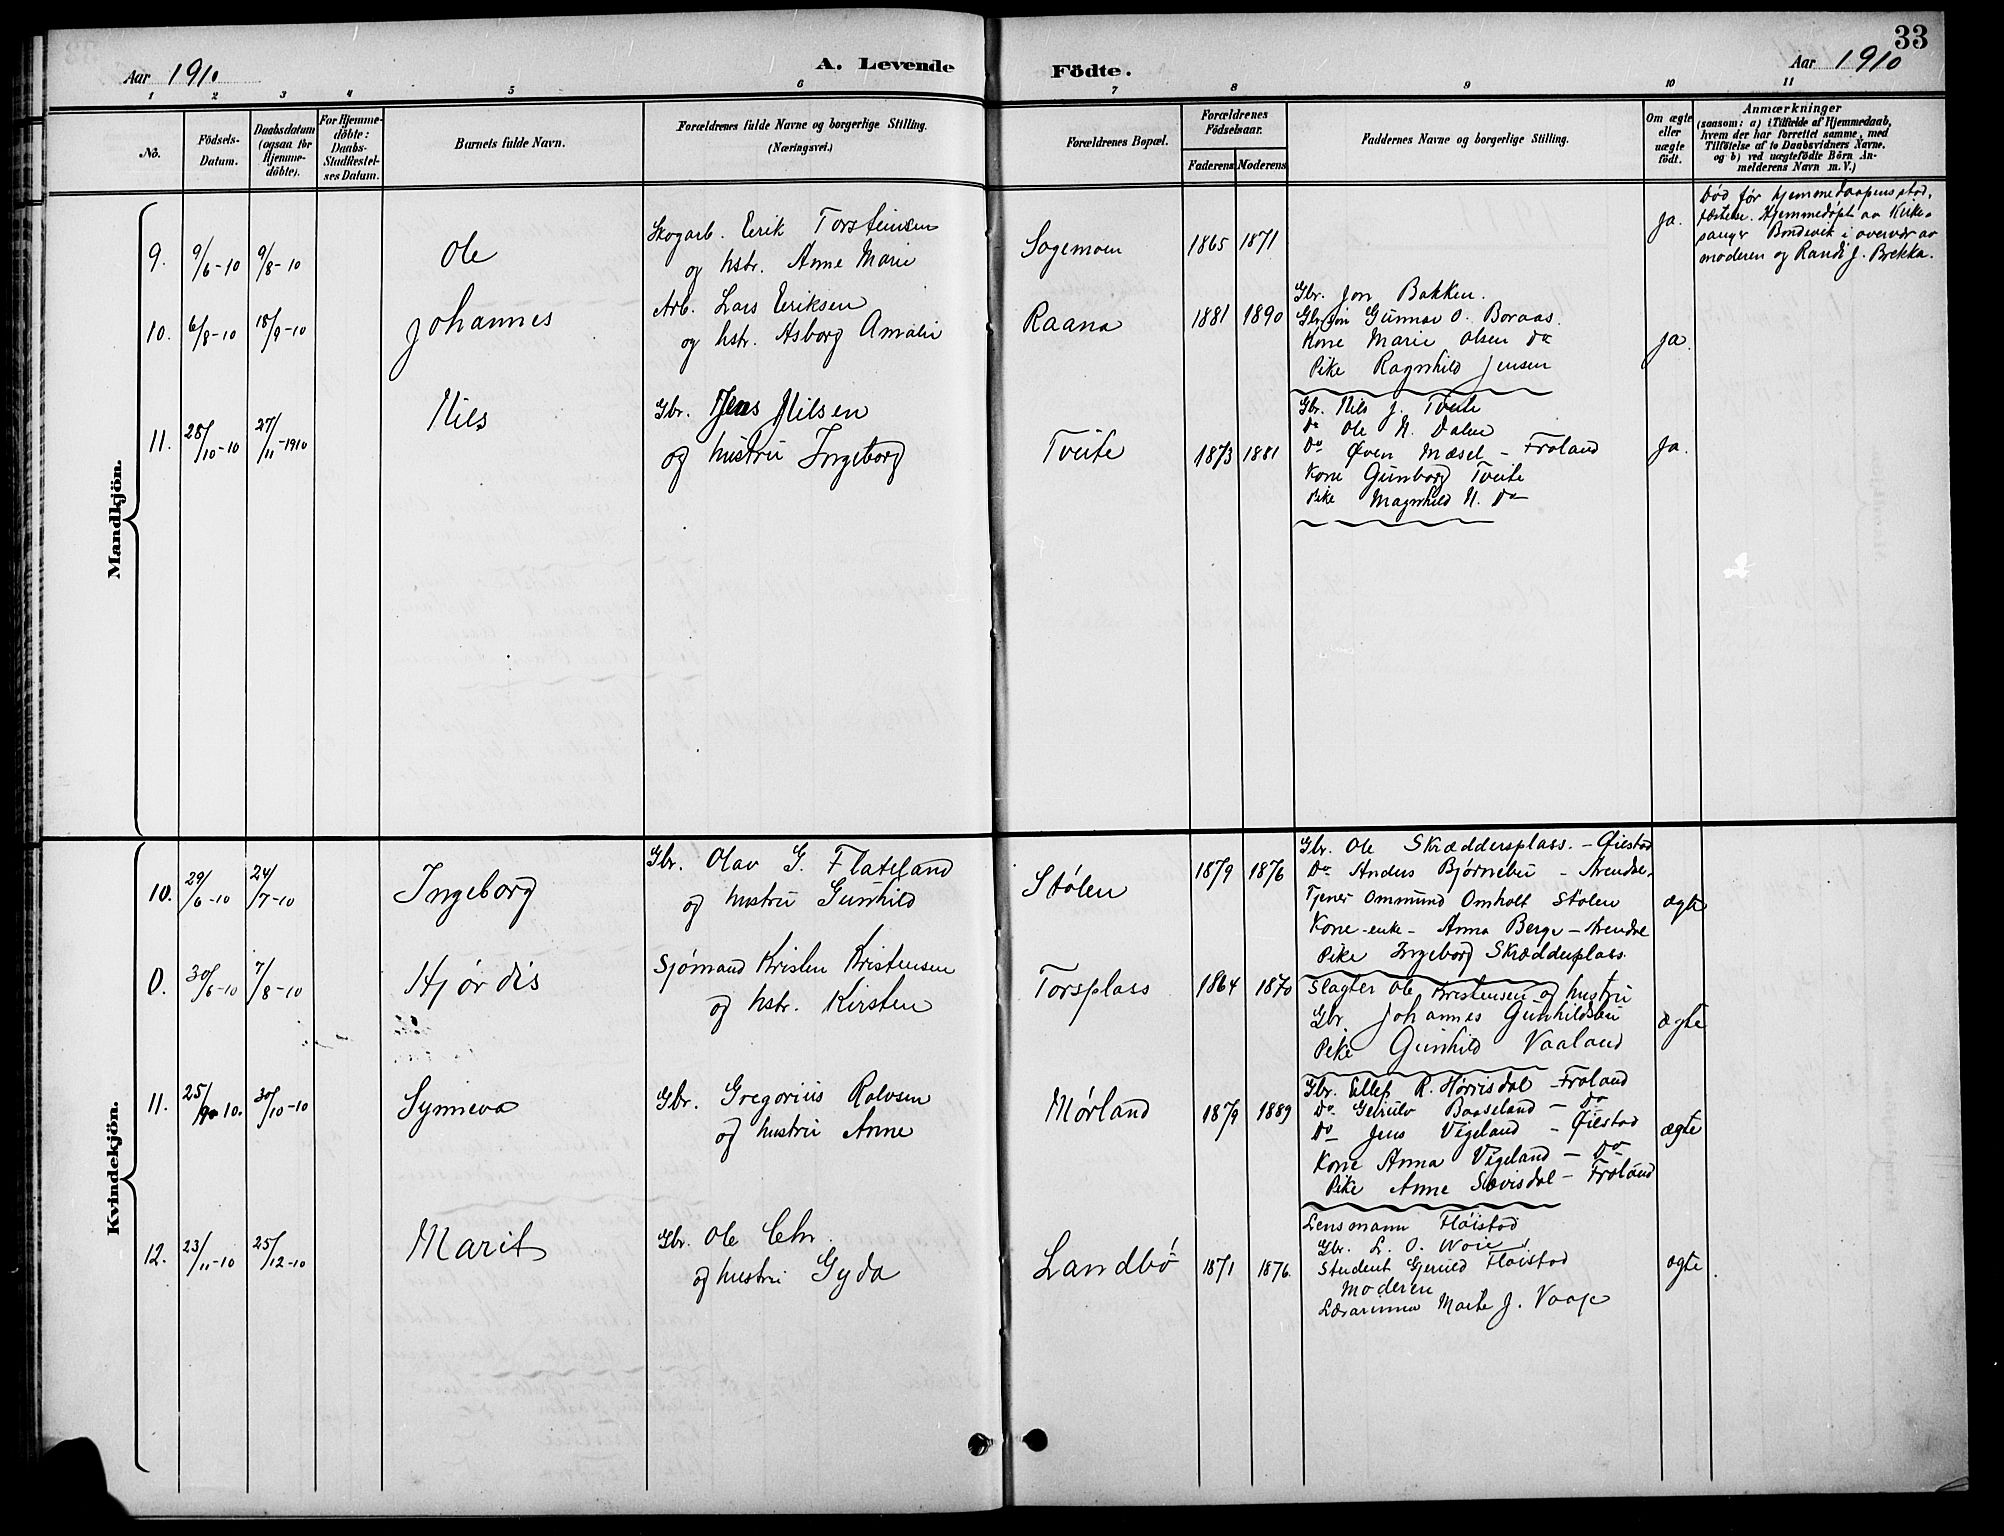 33
Aar 1910 A. Levende Födte. Aar 1910
1 2 3 4 5 6 7 8 9 10 11
No.
Födsels-
Datum.
Daabsdatum
(ogsaa for
Hjemme-
döbte).
For Hjemme-
döbte:
Daabs-
Stadfæstel-
ses Datum.
Barnets fulde Navn.
Forældrenes fulde Navne og borgerlige Stilling.
(Næringsvei.)
Forældrenes Bopæl.
Forældrenes
Födselsaar.
Faderens Moderens
Faddernes Navne og borgerlige Stilling.
Om ægte
eller
uægte
födt.
Anmærkninger
(saasom: a) i Tilfælde af Hjemmedaab,
hvem der har forrettet samme, med
Tilföielse af to Daabsvidners Navne,
og b) ved uægtefödte Börn An-
melderens Navn m. V.)
Mandkjön.
9. 9/6-10 9/8-10 Ole
Skogarb. Erik Torsteinsen
og hstr. Anne Marie
Sagemoen 1865 1871
Ja.
Død før hjemmedaapens stad-
fæstelse. Hjemmedøpt av Kirke-
sanger Bondevik i overvær av
moderen og Randi J. Brekka.
10. 6/8-10 18/9-10 Johannes
Arb. Lars Eriksen
og hstr. Asborg Amalie
Raana 1881 1890
Gbr. Jon Bakken.
Gbr.søn Gunnar O. Boraas.
Kone Marie Olsen Do
Pike Ragnhild Jensen
Ja.
11. 28/10-10 27/11-1910 Nils
Gbr. Jens Nilsen
og hustru Ingeborg
Tveite 1873 1881
Gbr. Nils J. Tveite
Do Ole N. Dalen
Do Øven Mæsel - Froland
Kone Gunborg Tveite
Pike Magnhild N. Do
Ja.
Kvindekjön.
10. 29/6-10 24/7-10 Ingeborg
Gbr. Olav G. Flateland
og hustru Gunhild
Stølen 1879 1876
Gbr. Ole Skræddersplass. - Øiestad
Do Anders Bjørnebu - Arendal.
Tjener Ommund Omholt Stølen
Kone - enke - Anna Berge - Arendal
Pike Ingeborg Skræddersplass.
ægte
0. 30/6-10 7/8-10 Hjørdis
Sjømand Kristen Kristensen
og hstr. Kirsten
Torsplass 1864 1870
Slagter Ole Kristensen og hustru
Gbr. Johannes Gunhildsbu
Pike Gunhild Vaaland
ægte
11. 25/9-10. 30/10-10 Synneva
Gbr. Gregorius Rolvsen
og hustru Anne
Mørland 1879 1889
Gbr. Ellef R. Hørrisdal - Froland
Do Geirulv Baaseland - Do
Do Jens Vigeland - Øiestad
Kone Anna Vigeland - Do
Pike Anne Sævisdal - Froland
ægte
12. 23/11-10 25/12-10 Marit
Gbr. Ole Chr.
og hustru Gyda
Landbø 1871 1876.
Lensmann Fløistad
Gbr. L. O. Woie
Student Fløistad
Moderen
Lærarinna Marte J. Vaaje
ægte